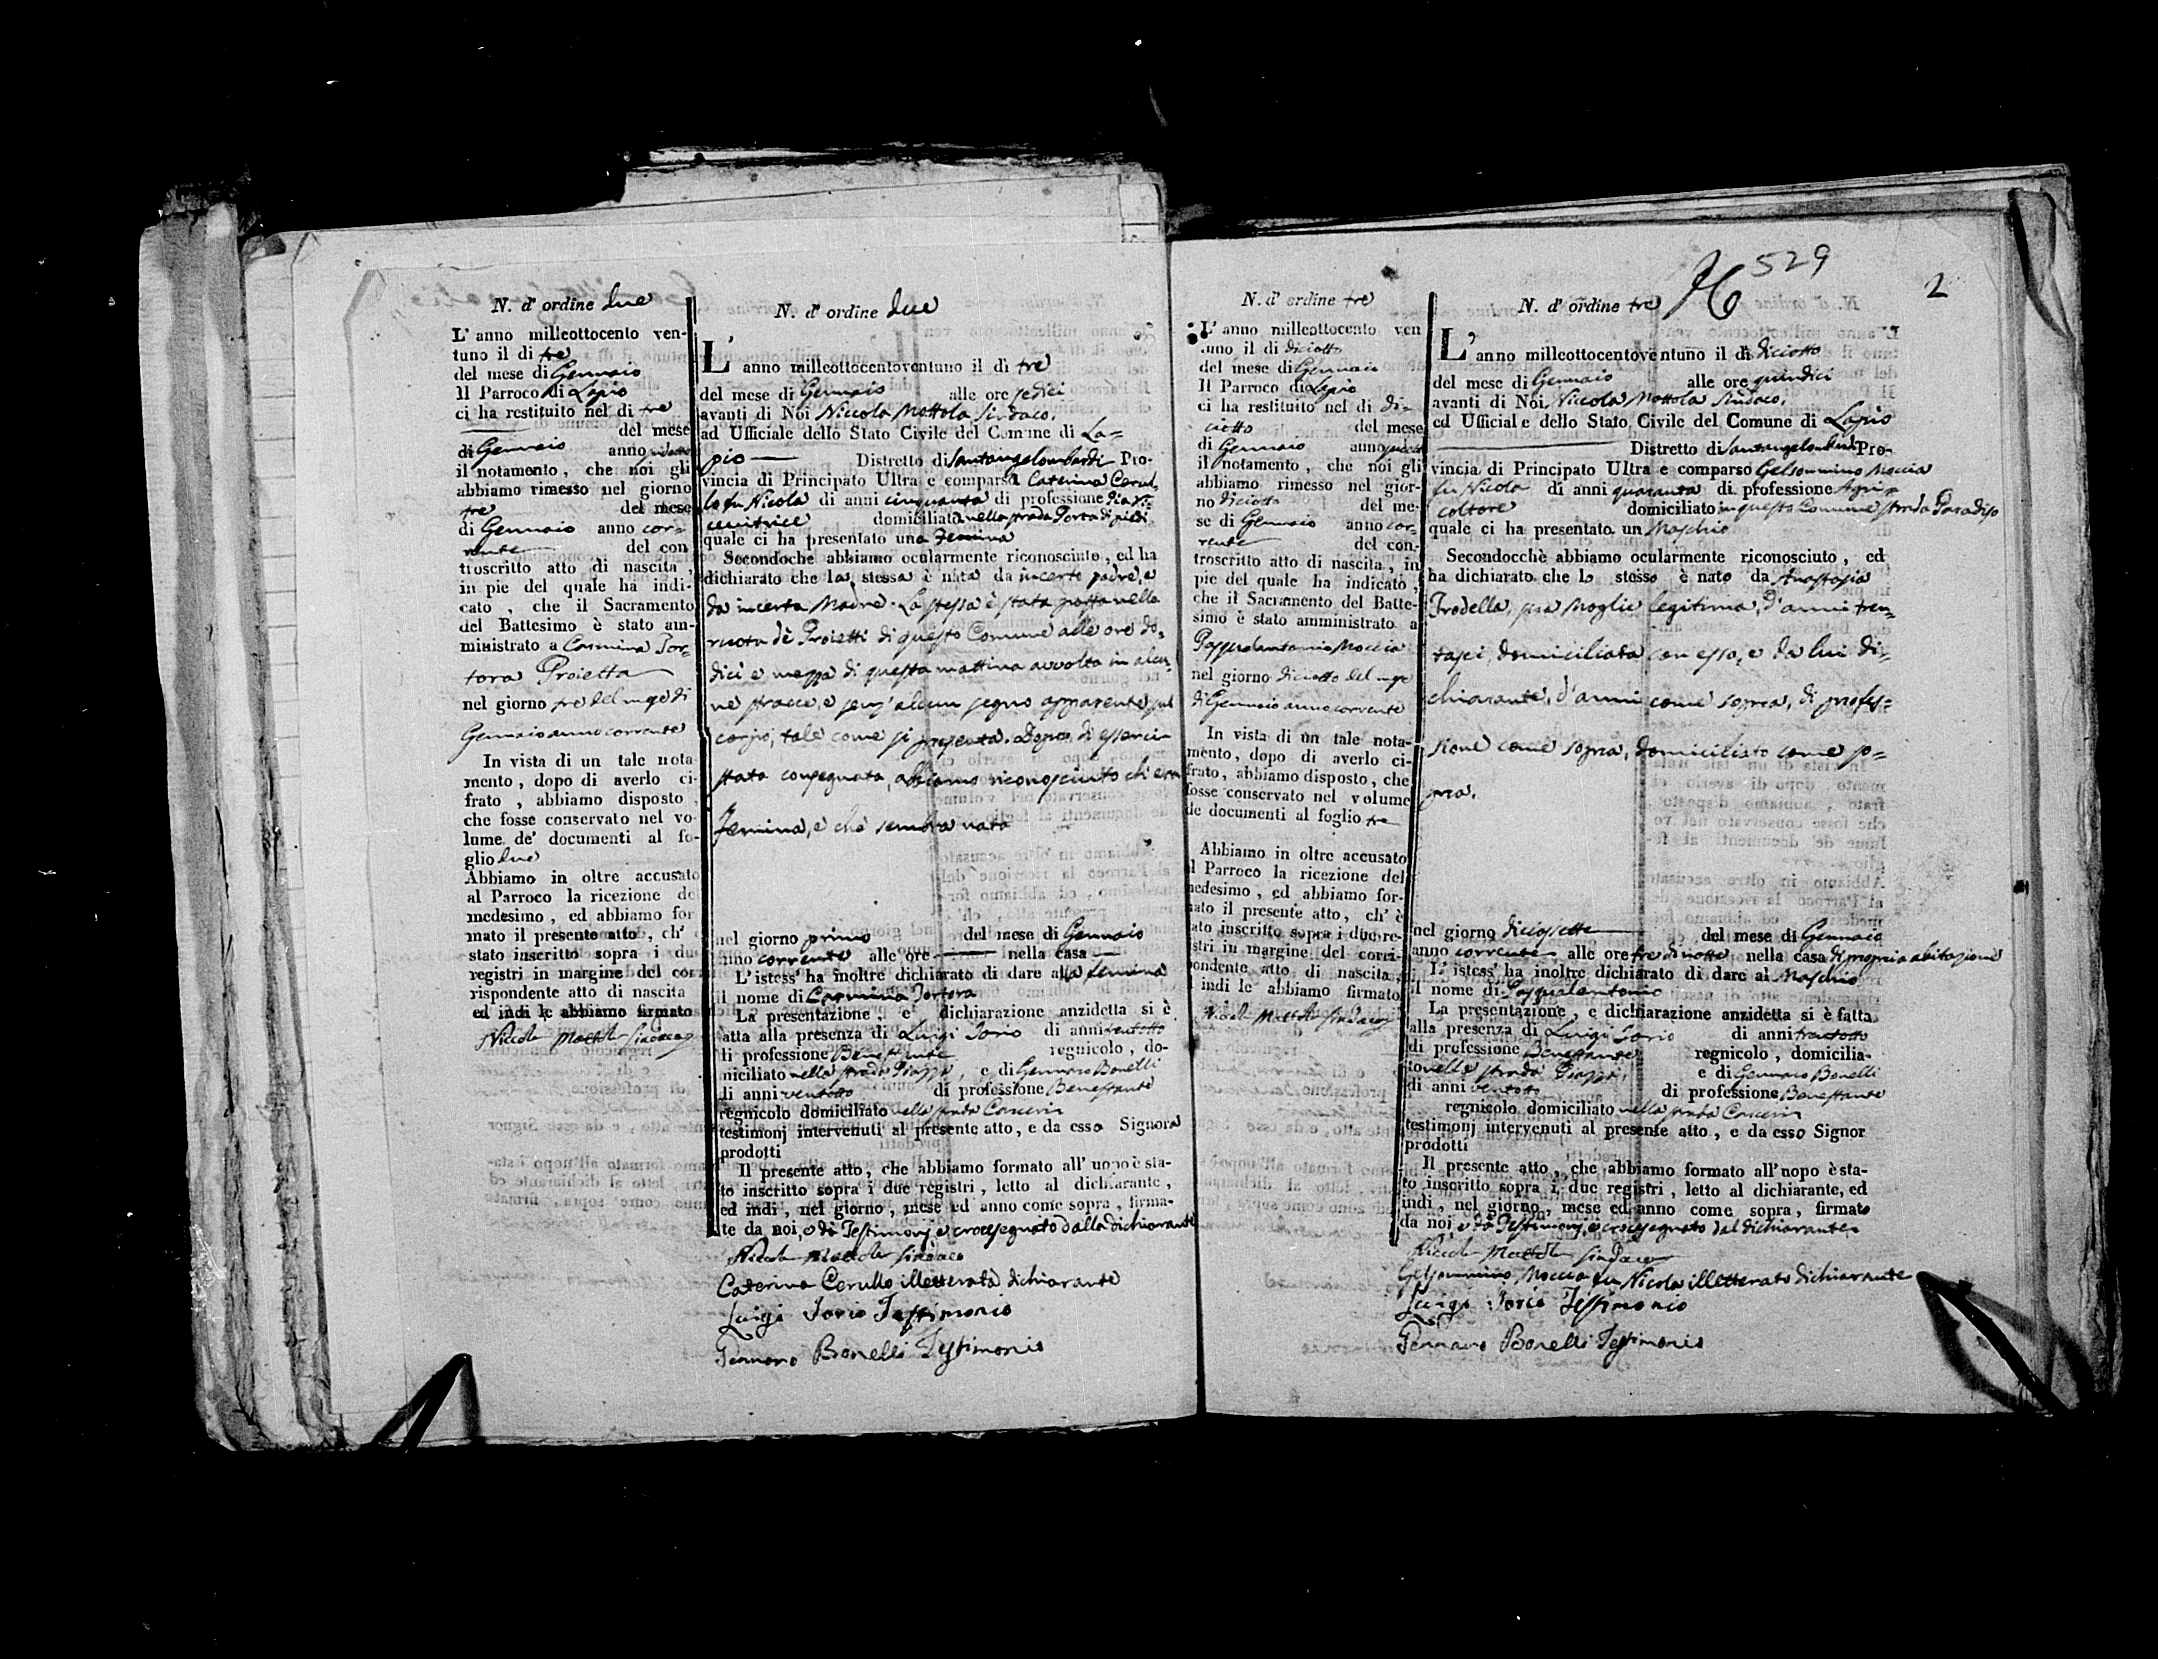 N. d' ordine due
L' anno milleottocento ven-
tuno il di tre
del mese di Gennaio
Il Parroco di Lapio
ci ha restituito nel di tre
del mese
di Gennaio anno
il notamento, che noi gli
abbiamo rimesso nel giorno
tre del mese
di Gennaio anno cor-
rente del con
troscritto atto di nascita,
in pie del quale ha indi-
cato, che il Sacramento
del Battesimo è stato am-
ministrato a Carmina Tor-
tora Proietta
nel giorno tre del mese di
Gennaio anno corrente
In vista di un tale nota-
mento, dopo di averlo ci-
frato, abbiamo disposto,
che fosse conservato nel vo-
lume de' documenti al fo-
glio due
Abbiamo in oltre accusato
al Parroco la ricezione de
medesimo, ed abbiamo for
mato il presente atto, ch' è
stato inscritto sopra i du
registri in margine del cor
rispondente atto di nascita
ed indi le abbiamo firmato
Niccola Mottola Sindaco
N. d' ordine due
L' anno milleottocentoventuno il di tre
del mese di Gennaio alle ore sedici
avanti di Noi Niccola Mottola Sindaco,
ad Ufficiale dello Stato Civile del Comune di La=
pio Distretto di Santangelombardi Pro-
vincia di Principato Ultra e comparsa Caterina Cerul-
lo fu Nicola di anni cinquanta di professione
domiciliata nella strada Porta di piedi
quale ci ha presentato una Femina
Secondochè abbiamo ocularmente riconosciuto, ed ha
dichiarato che la stessa è nata da incerto padre, e
da incerta Madre. La stessa è stata posta nella
ruota dè Proietti di questo Comune alle ore do-
dici e mezza di questa mattina avvolta in alcu-
ne stracce, e senz' alcun segno apparente sul
corpo, tale come si presenta. Dopo di esserci
stata consegnata, abbiamo riconosciuto ch' era
Femina, e che sembra nata
nel giorno primo del mese di Gennaio
anno corrente alle ore nella casa
L' istess' ha inoltre dichiarato di dare alla femina
il nome di Carmina Tortora
La presentazione, e dichiarazione anzidetta si è
fatta alla presenza di Luigi Iorio di anni trentotto
di professione Benestante regnicolo, do-
miciliato nella strada Piazza, e di Gennaro Bonelli
di anni ventotto di professione Benestante
regnicolo domiciliato nella strada Conceria
testimonj intervenuti al presente atto, e da esso Signora
prodotti
Il presente atto, che abbiamo formato all' uopo è sta-
to inscritto sopra i due registri, letto al dichiarante,
ed indi, nel giorno, mese ed anno come sopra, firma-
te da noi, e dà Testimonj, e crocesegnato dalla dichiarante
Niccola Mottola Sindaco
Caterina Cerullo illetterata dichiarante
Luigi Iorio Testimonio
Gennaro Bonelli Testimonio
529
2
N. d' ordine tre
L' anno milleottocento ven
tuno il di diciotto
del mese di Gennaio
Il Parroco di Lapio
ci ha restituito nel di di-
ciotto del mese
di Gennaio anno
il notamento, che noi gli
abbiamo rimesso nel gior-
no diciotto del me-
se di Gennaio anno cor-
rente del con-
troscritto atto di nascita, in
pie del quale ha indicato,
che il Sacramento del Batte-
simo è stato amministrato a
Pasqualantonio Moccia
nel giorno diciotto del mese
di Gennaio anno corrente
In vista di un tale nota-
mento, dopo di averlo ci-
frato, abbiamo disposto, che
fosse conservato nel volume
de documenti al foglio tre
Abbiamo in oltre accusato
al Parroco la ricezione del
medesimo, ed abbiamo for-
mato il presente atto, ch' è
stato inscritto sopra i due re-
gistri in margine del corri-
spondente atto di nascita,
indi le abbiamo firmato
Niccola Mottola Sindaco
N. d' ordine tre
L' anno milleottocentoventuno il di diciotto
del mese di Gennaio alle ore quindici
avanti di Noi Niccola Mottola Sindaco,
ed Ufficiale dello Stato Civile del Comune di Lapio
Distretto di Santangelombardi Pro-
vincia di Principato Ultra e comparso Gelsommino Moccia
fu Nicola di anni quaranta di professione Agri-
coltore domiciliato in questo Comune strada Paradiso
quale ci ha presentato un Maschio
Secondocchè abbiamo ocularmente riconosciuto, ed
ha dichiarato che lo stesso è nato da Anastasia
Trodella, sua Moglie legitima, d'anni tren-
tasei, domiciliata con esso, e da lui di-
chiarante, d'anni come sopra, di profes-
sione come sopra, domiciliato come so-
pra.
nel giorno diciassette del mese di Gennaio
anno corrente alle ore tre di notte nella casa di propria abitazione
L' istess' ha inoltre dichiarato di dare al Maschio
il nome di Pasqualantonio
La presentazione, e dichiarazione anzidetta si è fatta
alla presenza di Luigi Iorio di anni trentotto
di professione Benestante regnicolo, domicilia-
to nella strada Piazza, e di Gennaro Bonelli
di anni ventotto di professione Benestante
regnicolo domiciliato nella strada Conceria
testimonj intervenuti al presente atto, e da esso Signor
prodotti
Il presente atto, che abbiamo formato all' uopo è sta-
to inscritto sopra i due registri, letto al dichiarante, ed
indi, nel giorno, mese ed anno come sopra, firmato
da noi e dà Testimonj, e crocesegnato dal dichiarante
Niccola Mottola Sindaco
Gelsommino Moccia fu Nicola illetterato dichiarante
Luigi Iorio Testimonio
Gennaro Bonelli Testimonio